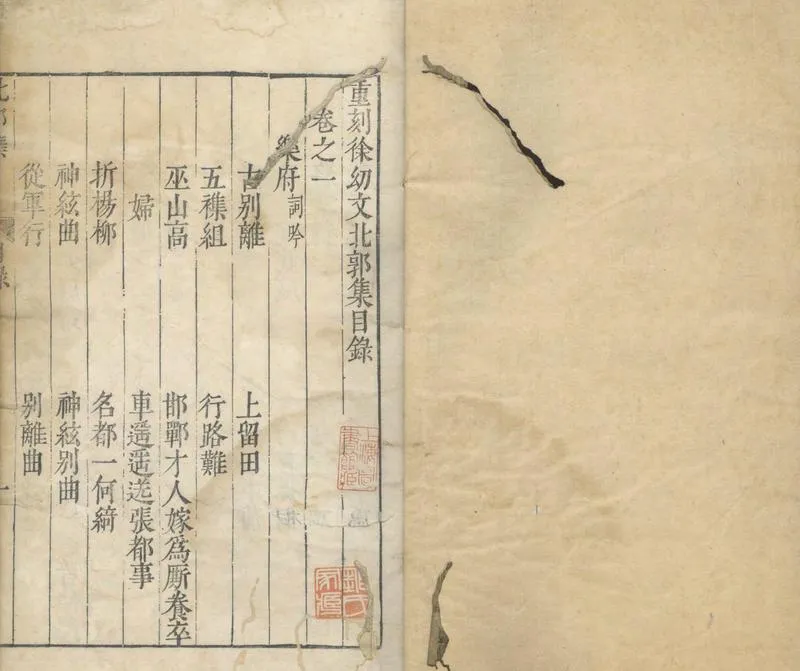 重刻徐幼文北郭集目錄
卷之一
樂府詞吟
古別離 上留田
五襍組 行路難
巫山高 邯鄲才人嫁為廝養卒
婦 車遥遥送張都事
折楊柳 名都一何綺
神絃曲 神絃別曲
從軍行 別離曲